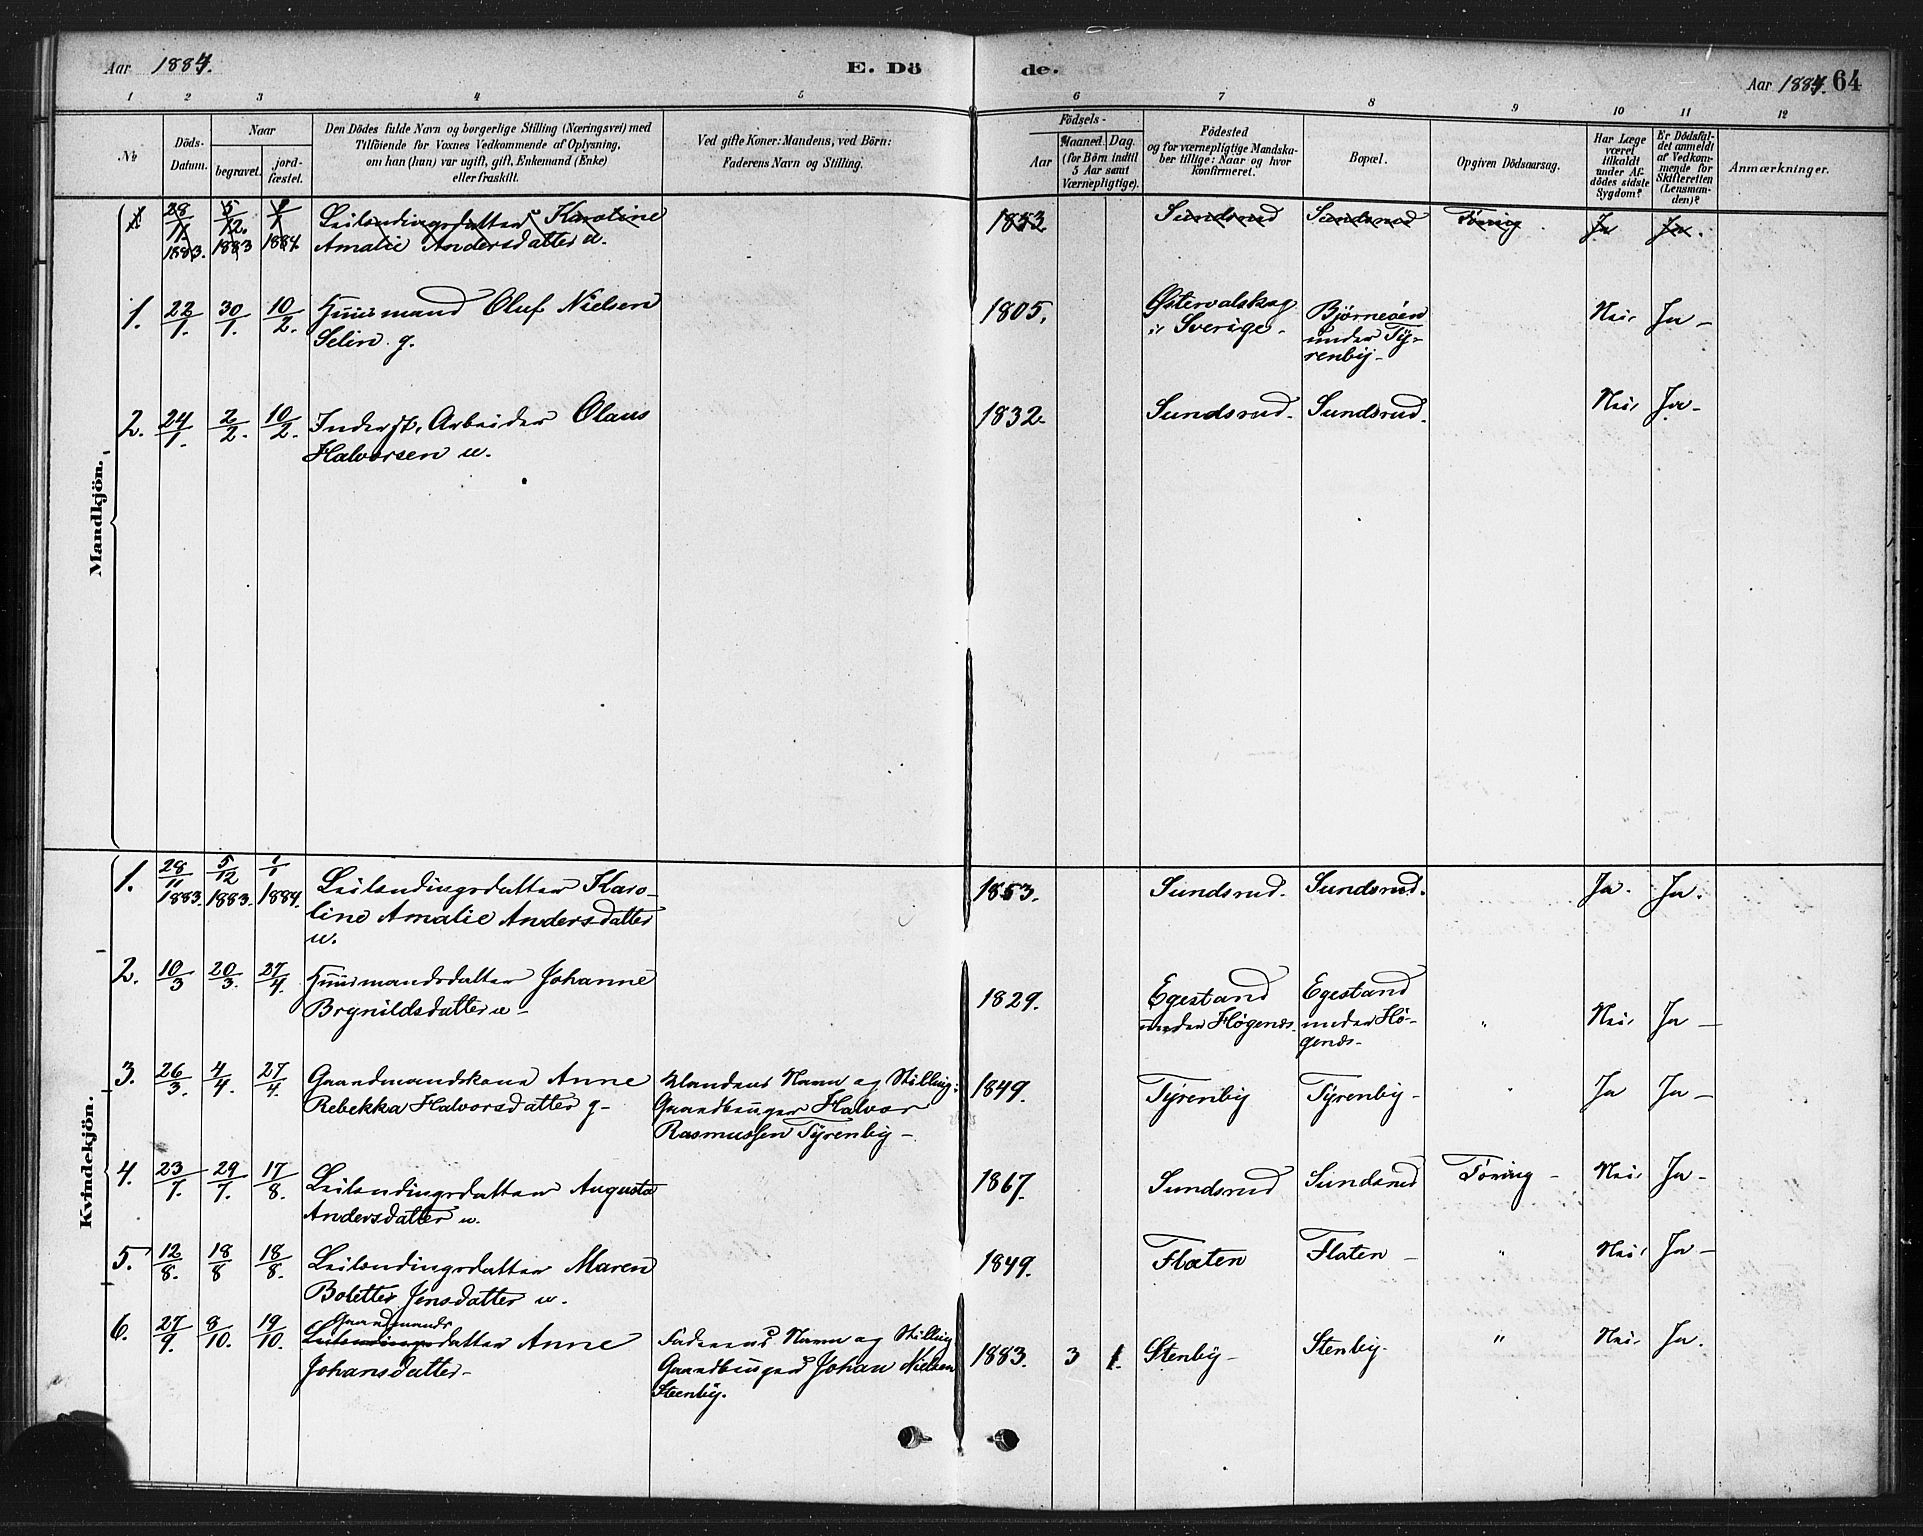 Aar 1884.
E. Dö
de.
Aar 1884. 64
1 2 3 4 5 6 7 8 9 10 11 12
No
Döds-
Datum.
Naar
begravet.
jord-
fæstet.
Den Dödes fulde Navn og borgerlige Stilling (Næringsvei) med
Tilföiende for Voxnes Vedkommende af Oplysning,
om han (hun) var ugift, gift, Enkemand (Enke)
eller fraskilt.
Ved gifte Koner: Mandens, ved Börn:
Faderens Navn og Stilling.
Födsels-
Aar
Maaned. Dag.
(for Börn indtil
5 Aar samt
Værnepligtige).
Födested
og for værnepligtige Mandska-
ber tillige: Naar og hvor
konfirmeret.
Bopæl.
Opgiven Dödsaarsag.
Har Læge
været
tilkaldt
under Af-
dödes sidste
Sygdom?
Er Dödsfal-
det anmeldt
af Vedkom-
mende for
Skifteretten
(Lensman-
den)?
Anmærkninger.
Mandkjön.
1. 28/11 1883. 5/12 1883 1/1 1884. Leilendingsdatter Karoline
Amalie Andersdatter u.
1853. Sundsrud Sundsrud Töring Ja Ja.
1. 22/1. 30/1. 10/2. Huusmand Oluf Nielsen
Selin g.
1805. Østervalskog
i Sverige. Björneöen
under Ty-
renby- Nei. Ja-
2. 24/1. 2/2. 10/2. Inderst, Arbeider Olaus
Halvorsen u.
1832. Sundsrud. Sundsrud. Nei. Ja-
Kvindekjön.
1. 28/11 1883. 5/12 1883. 1/1 1884. Leilendingsdatter Karo-
line Amalie Andersdatter
u.
1853. Sundsrud. Sundsrud. Ja. Ja.
2. 10/3 20/3. 27/4. Huusmandsdatter Johanne
Brynildsdatter u-
1829. Egestand
under Høgenes. Egestand
under Hø-
genes- " Nei. Ja-
3. 26/3. 4/4. 27/4. Gaardmandskone Anne
Rebekka Halvorsdatter g-
Mandens Navn og Stilling:
Gaardbruger Halvor
Rasmussen Tyrenby-
1849. Tyrenby Tyrenby- " Ja Ja-
4. 23/7. 29/7. 17/8. Leilendingsdatter Augusta
Andersdatter u.
1867. Sundsrud Sundsrud Töring- Nei. Ja-
5. 12/8. 18/8 18/8. Leilendingsdatter Maren
Bolette Jensdatter u.
1849. Flaten Flaten- " Nei. Ja-
6. 27/9. 8/10. 19/10. Gaardmands
Leilendingsdatter Anne
Johansdatter-
Faderens Navn og Stilling
Gaardbruger Johan Nielsen
Steenby.
1883. 3 1. Stenby- Stenby- " Nei. Ja.